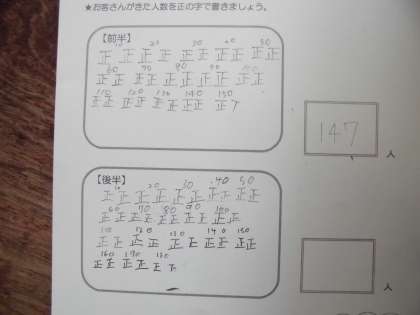 ★お客さんがきた人数を正の字で書きましょう。
【前半】
10 20 30 40 50
正 正 正 正 正 正 正 正 正 正
60 70 80 90 100
正 正 正 正 正 正 正 正 正 正
110 120 130 140 150
正 正 正 正 正 正 正 正 正 丅
147
人
【後半】
10 20 30 40 50
正 正 正 正 正 正 正 正 正 正
60 70 80 90 100
正 正 正 正 正 正 正 正 正 正
110 120 130 140 150
正 正 正 正 正 正 正 正 正 正
160 170 180
正 正 正 正 正
人